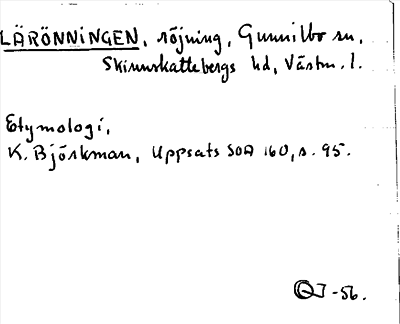 LÄRÖNNINGEN, röjning, Gunnilbo sn,
Skinnskattebergs hd, Västm. l.
Etymologi,
K. Björkman, Uppsats SOA 160, s. 95.
-56.